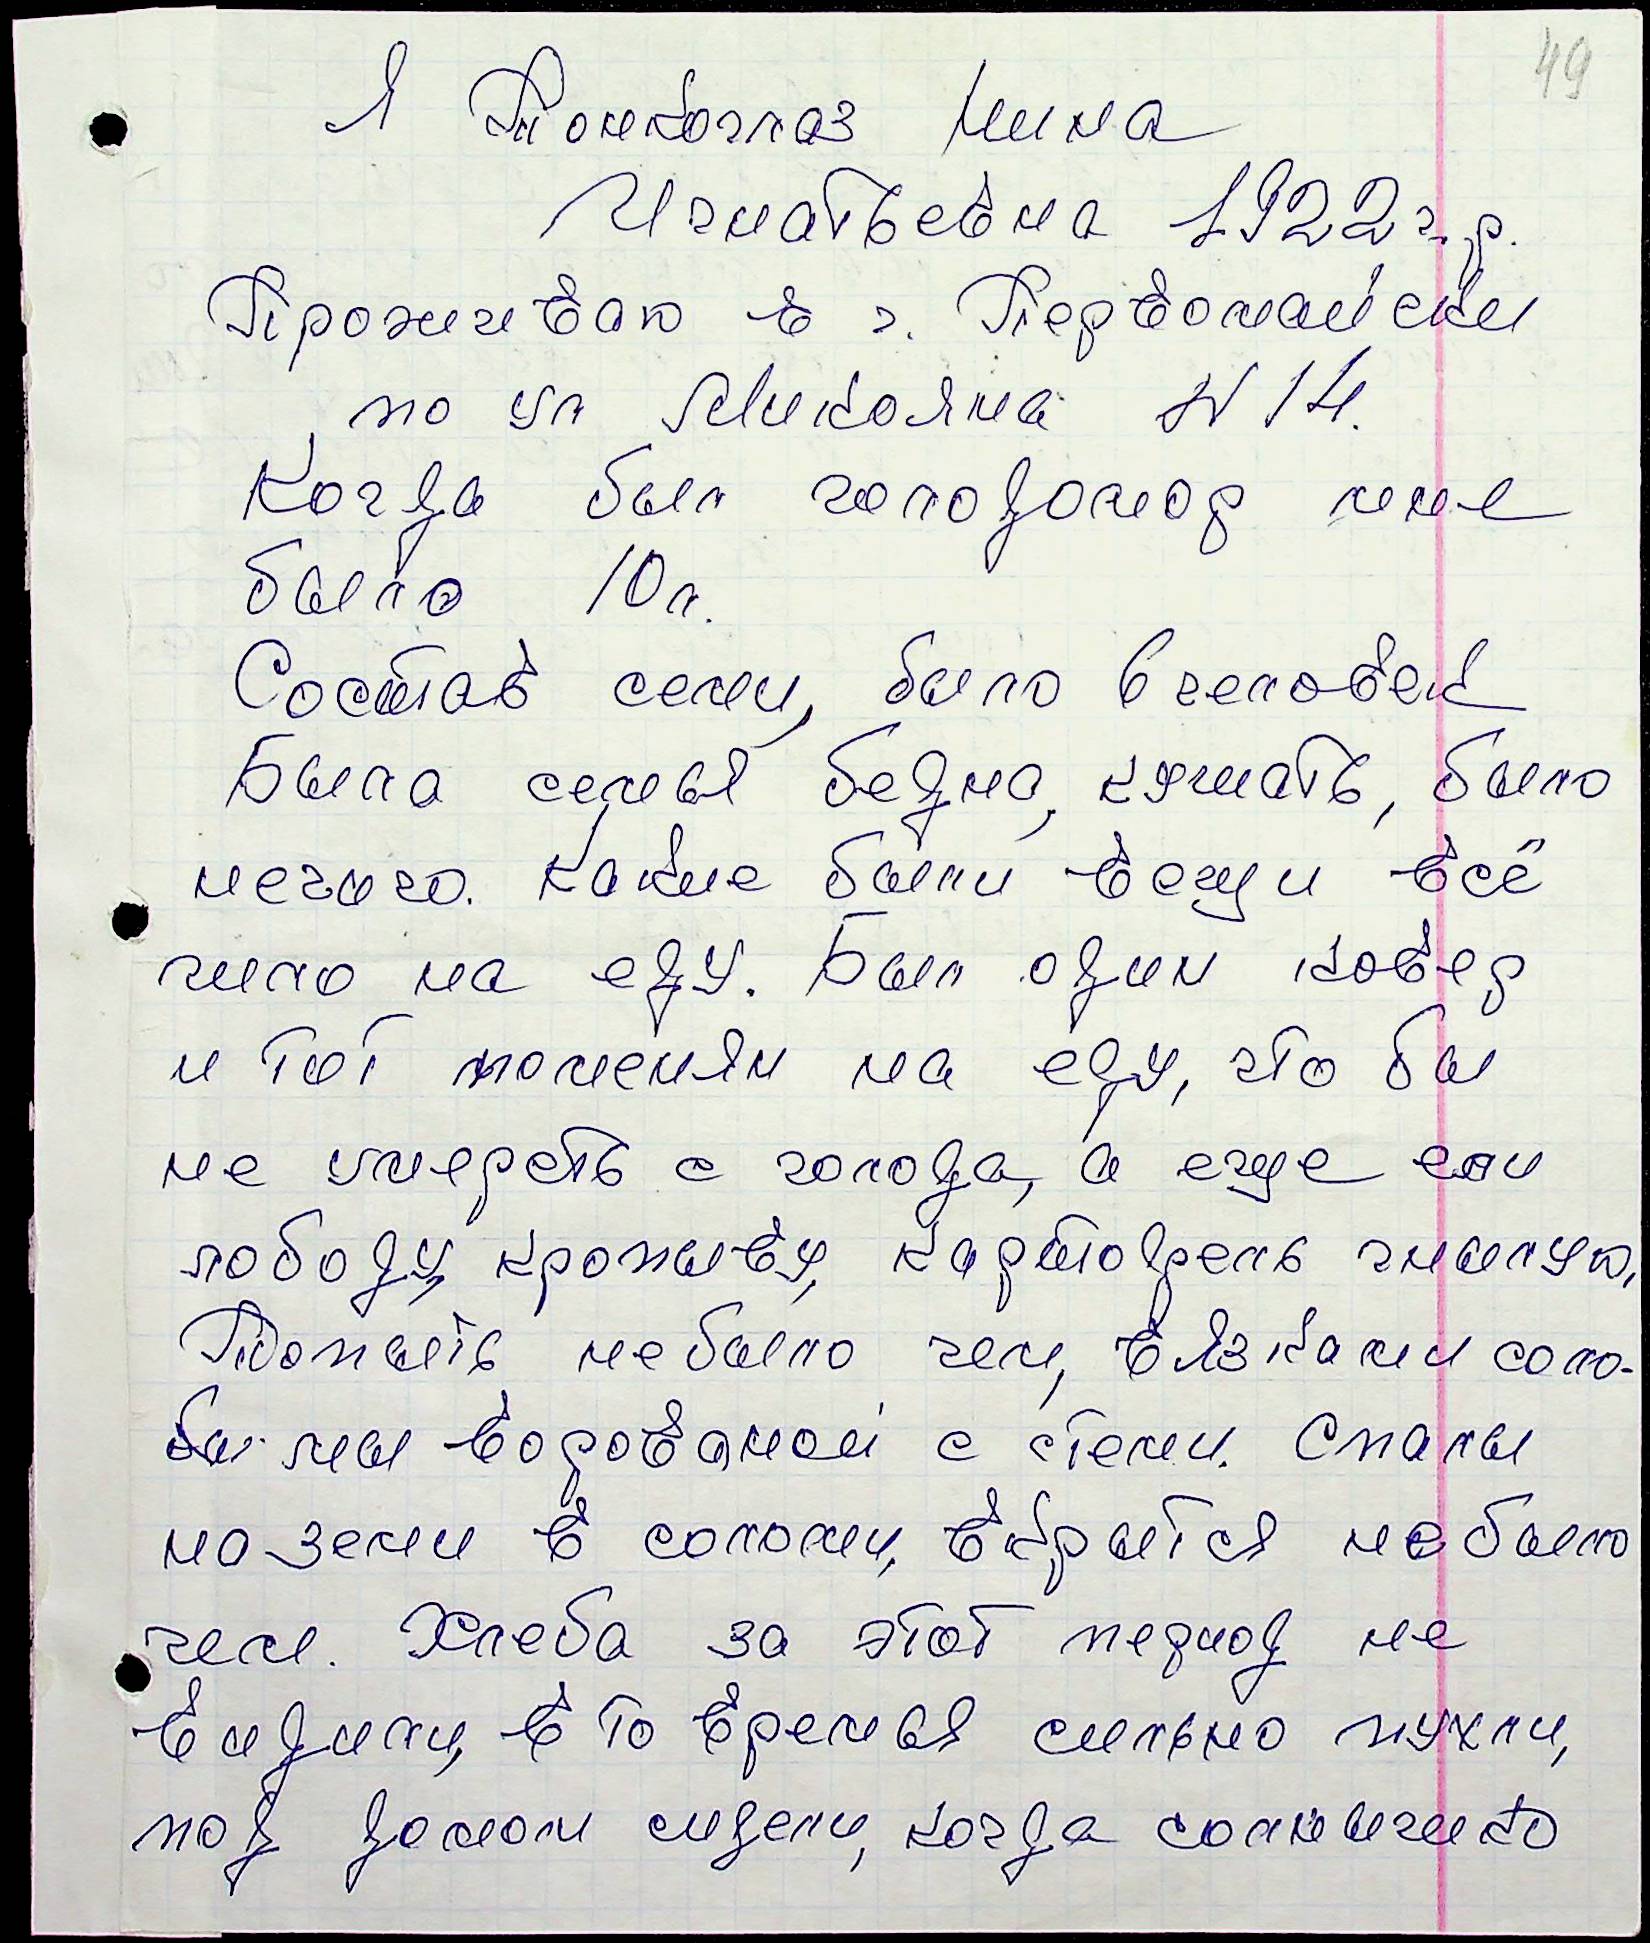 49
Я Тонкоглаз Нина
Игнатьевна 1922 г.р.
Проживаю в г. Первомайски
по ул Микояна N 14.
Когда был голодомор мне
было 10 л.
Состав семи, было 6 человек
Была семья бедна, кушать, было
нечиго. Какие были вещи всё
чило на еду. Был один ковер
и тот поменян на еду, что бы
не умереть с голода, а еще ели
лободу, кропыву, картофель гнылую,
Топыть небыло чем, вязками соло-
бы мы ворованой с степи. Спалы
на земи в соломи, вкрытся небыло
чем. Хлеба за этот период не
видили, в то времья сильно пухли,
под домом сидели, когда солнышко